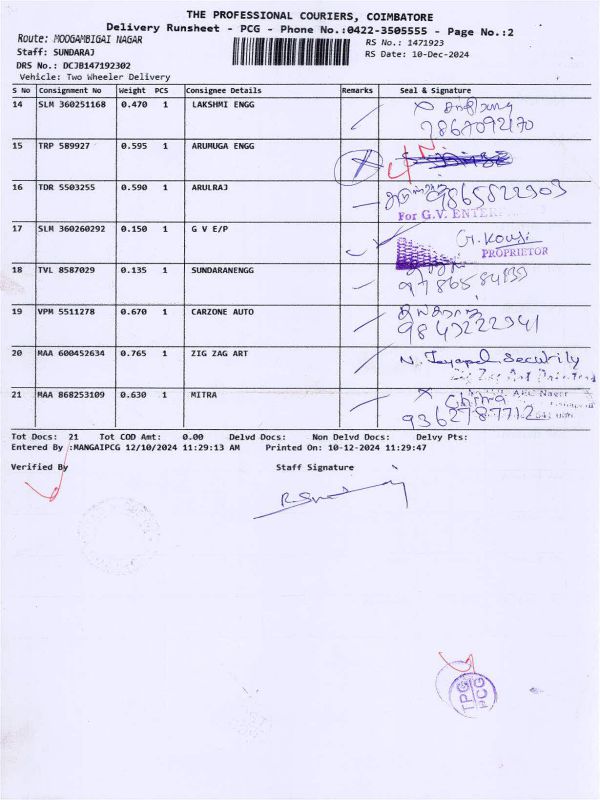 THE PROFESSIONAL COURIERS, COIMBATORE
Delivery Runsheet - PCG - Phone No.:0422-3505555 - Page No.:2
Route: MOOGAMBIGAI NAGAR
RS No.: 1471923
Staff: SUNDARAJ
RS Date: 10-Dec-2024
DRS No.: DCJB147192302
Vehicle: Two Wheeler Delivery
S No Consignment No Weight PCS Consignee Details Remarks Seal & Signature
14 SLM 360251168 0.470 1 LAKSHMI ENGG
9867092170
15 TRP 589927 0.595 1 ARUMUGA ENGG
16 TDR 5503255 0.590 1 ARULRAJ 9865822303
For G.V. ENTER
17 SLM 360260292 0.150 1 G V E/P
G. Kousi
PROPRIETOR
18 TVL 8587029 0.135 1 SUNDARANENGG
19 VPM 5511278 0.670 1 CARZONE AUTO
9843222341
20 MAA 600452634 0.765 1 ZIG ZAG ART N. Jayapal Security
21 MAA 868253109 0.630 1 MITRA
Chitra
9362787712
Tot Docs: 21 Tot COD Amt: 0.00 Delvd Docs: Non Delvd Docs: Delvy Pts:
Entered By :MANGAIPCG 12/10/2024 11:29:13 AM Printed On: 10-12-2024 11:29:47
Verified By Staff Signature
TPC
PCG